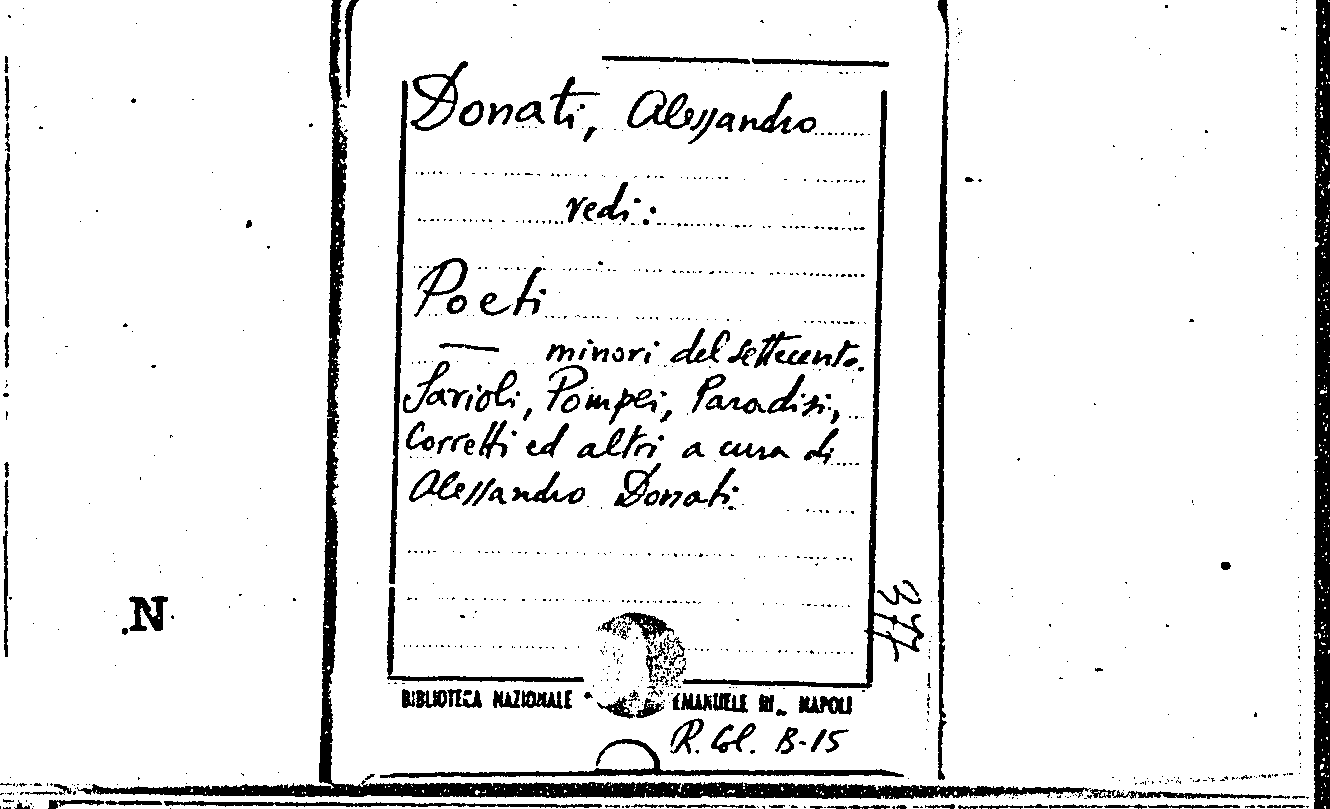 Donati, Alessandro
vedi:
Poeti
— minori del settecento.
Savioli, Pompei, Paradisi,
Corretti ed altri a cura di
Alessandro Donati.
377
N
BIBLIOTECA NAZIONALE EMANUELE III NAPOLI
R. Col. B-15